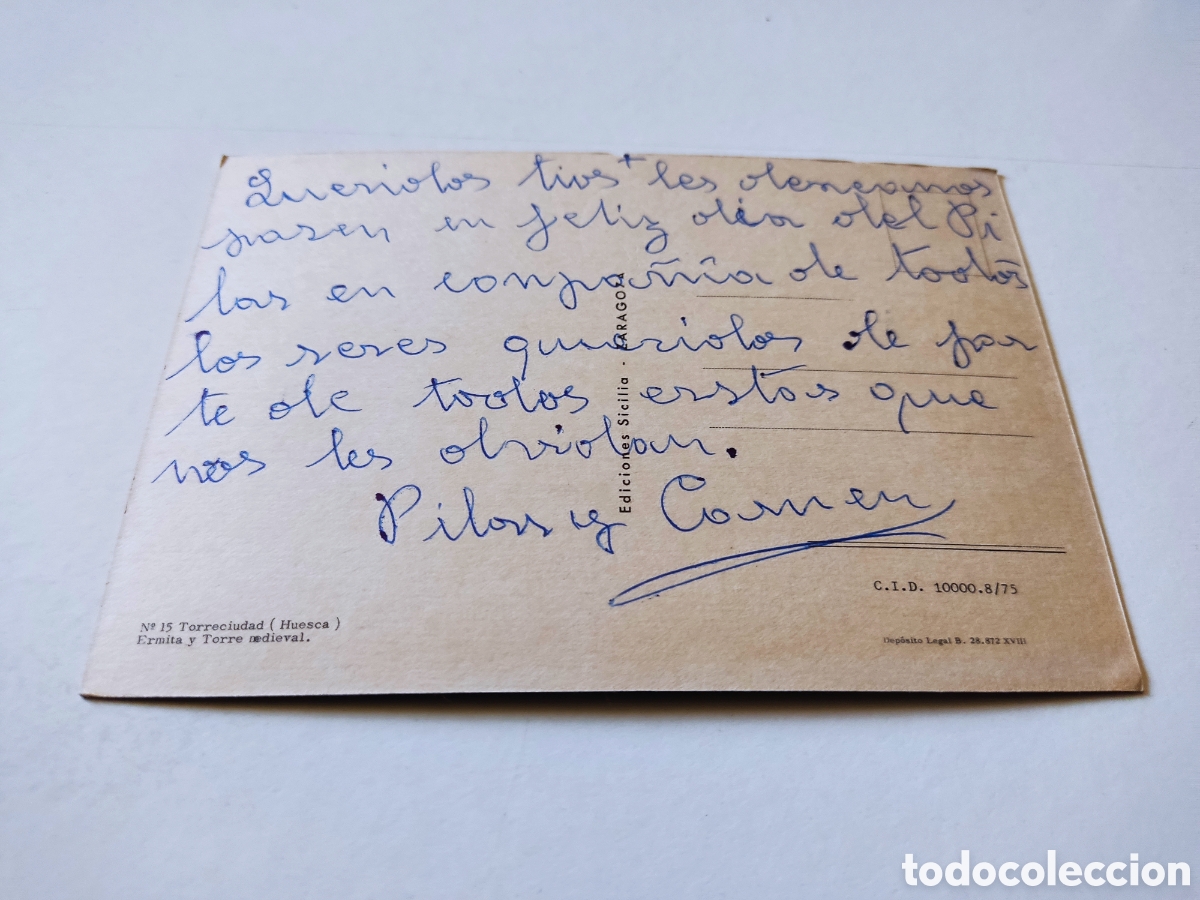 Queridos tios + les deseamos
pasen en feliz día del Pi
lar en conpañía de todos
los seres queridos de par
te de todos estas que
nos les olvidan.
Pilar y Carmen
Ediciones Sicilia - ZARAGOZA
C.I.D. 10000.8/75
Nº 15 Torreciudad ( Huesca )
Ermita y Torre medieval.
Depósito Legal B. 28.872 XVIII
todocoleccion